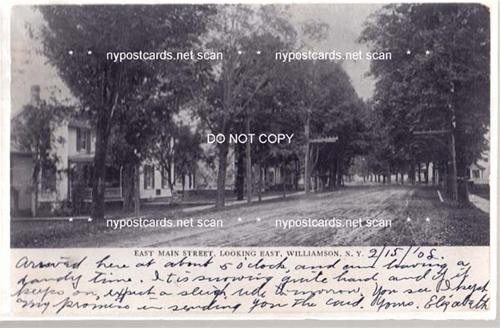 * nypostcards.net scan * * nypostcards.net scan *
DO NOT COPY
* nypostcards.net scan * * nypostcards.net scan *
EAST MAIN STREET, LOOKING EAST, WILLIAMSON, N. Y. 2/15/'08.
Arrived here at about 5 o'clock, and am having a
dandy time. It is snowing quite hard and if it
keeps on, expect a sleigh ride to-morrow. You see I kept
my promise in sending you the card. Yours. Elizabeth